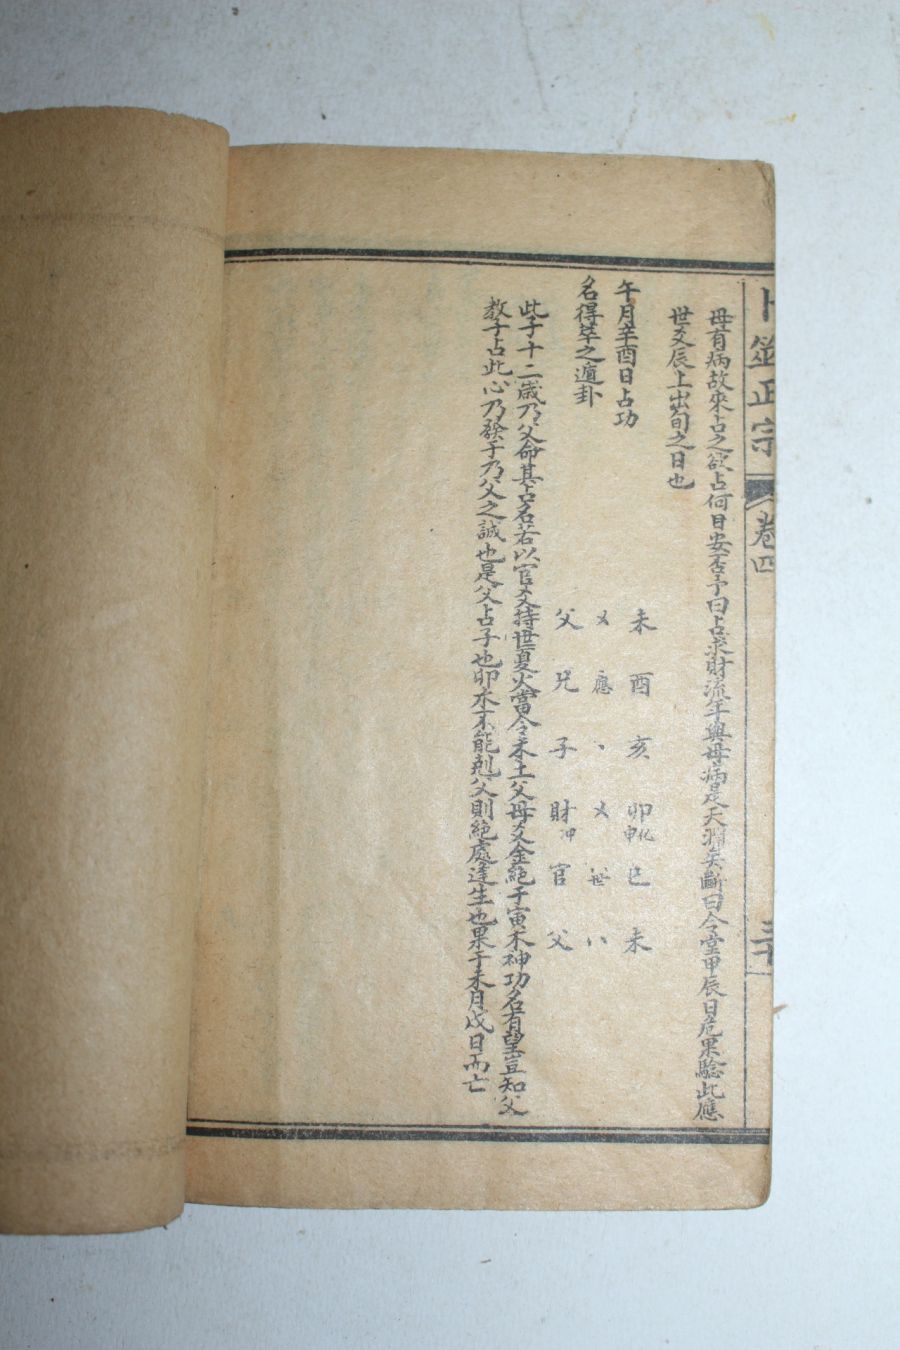 卜筮正宗 卷四 三十
母有病故來占之欲占何日安否予曰占求財流年與母病是天淵矣斷曰令堂甲辰日危果驗此應
世爻辰上出旬之日也
午月辛酉日占功
名得萃之遯卦
未 酉 亥 卯化申 巳 未
乂 應 、 乂 世 八
父 兄 子 財冲 官 父
此子十二歲乃父命其占名若以官爻持世夏火當令未土父母爻金絕于寅木神功名有望豈知父
教子占此心乃發于乃父之誠也是父占子也卯木不能剋父則絕處逢生也果于未月戌日而亡